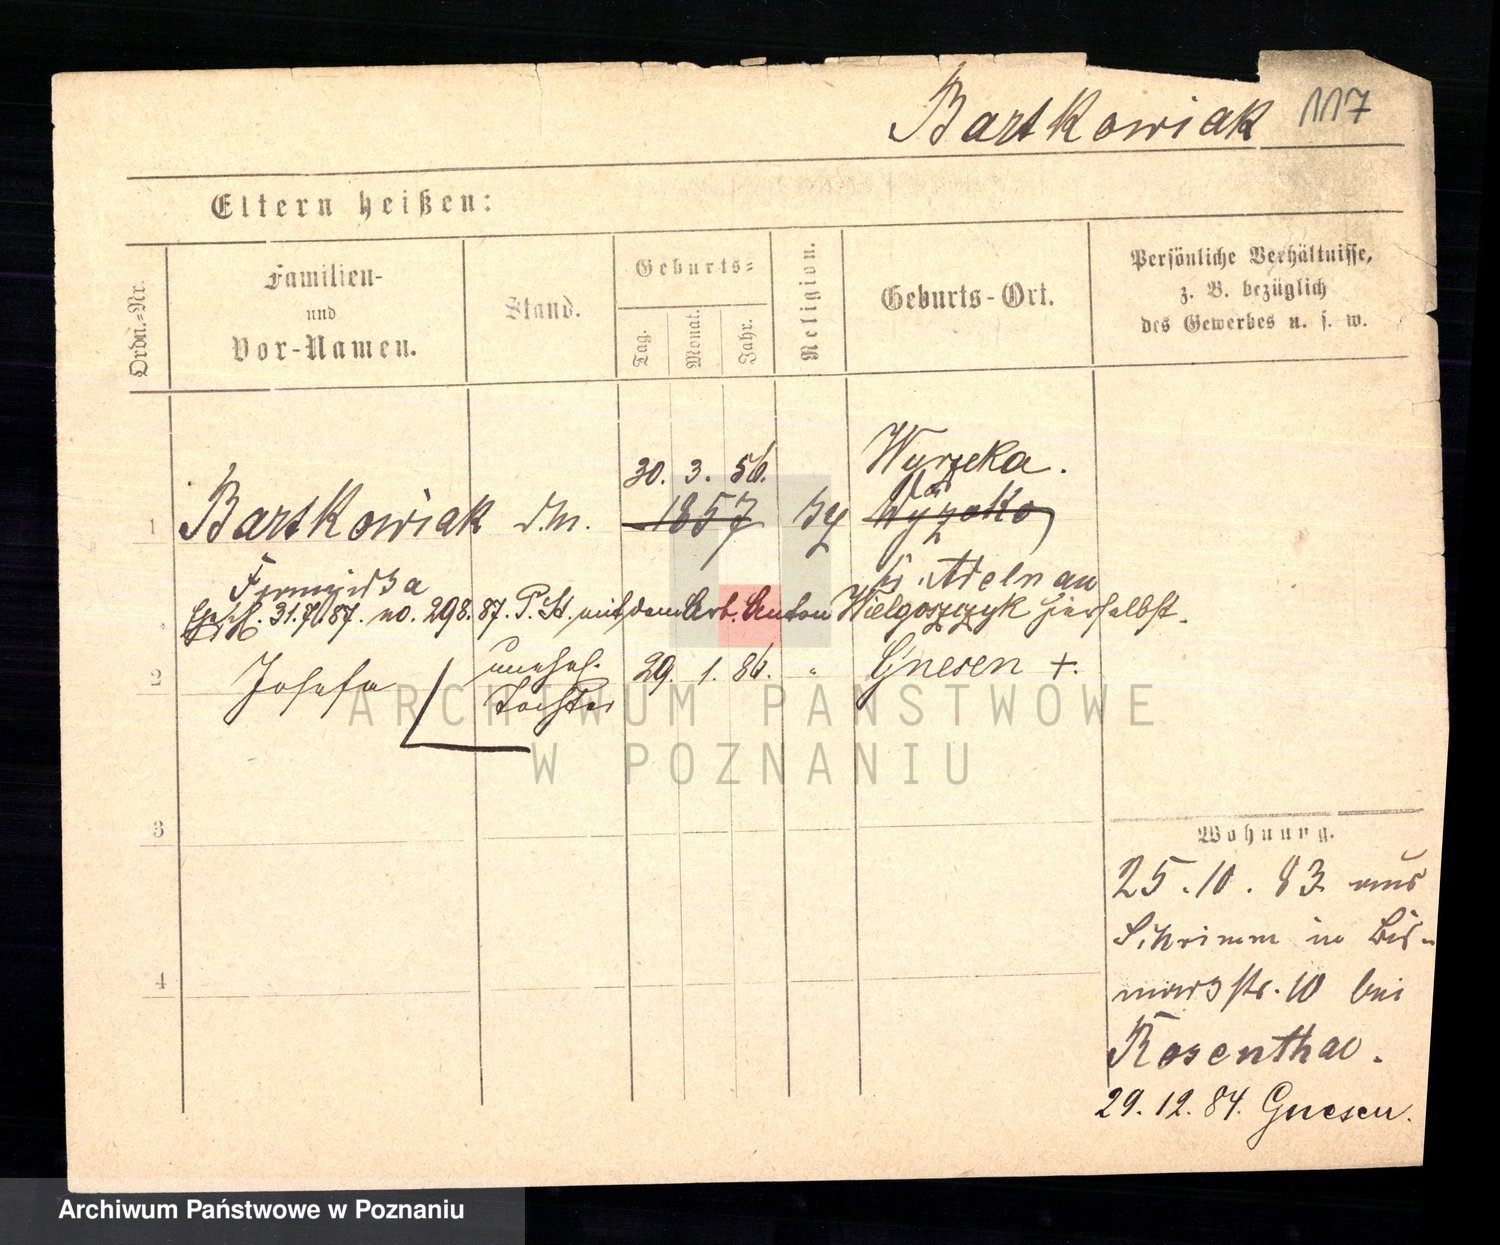 Bartkowiak 117
Eltern heißen:
Ordn.=Nr.
Familien-
und
Vor-Namen.
Stand.
Geburts=
Tag.
Monat.
Jahr.
Religion.
Geburts-Ort.
Persönliche Verhältnisse,
z. B. bezüglich
des Gewerbes u. s. w.
30. 3. 56. Wyrzeka.
1 Bartkowiak d.M. 1857
Kr. Adelnau
31.7.87. no. 298.87. P. St. mit dem Arb. Anton Wielgoszczyk hierselbst.
2 Josefa unehel. 29. 1. 86. " Gnesen +.
Tochter
ARCHIWUM PAŃSTWOWE
W POZNANIU
3
Wohnung.
25.10.83 aus
Schrimm in Bis-
4
marckstr. 10 bei
Rosenthal.
29.12.84. Gnesen.
Archiwum Państwowe w Poznaniu